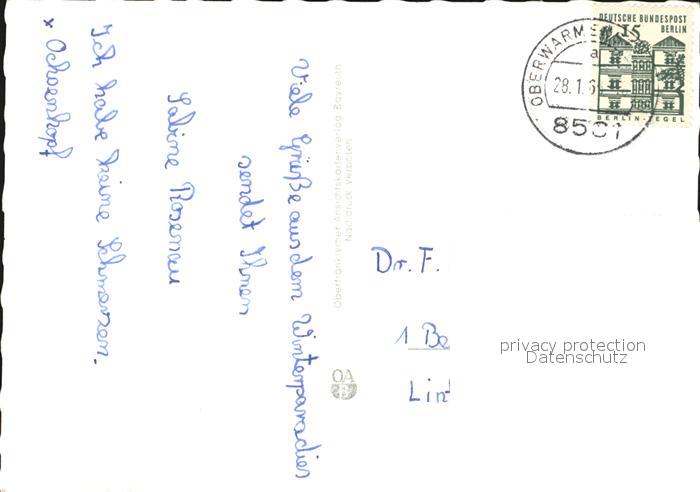 Viele Grüße aus dem Winterparadies
sendet Ihnen
Sabine Rosenau
Ich habe keine Schmerzen.
x Ochsenkopf
Oberfränkischer Ansichtskartenverlag Bayreuth
Nachdruck verboten
OA
B
DEUTSCHE BUNDESPOST
BERLIN
15
BERLIN-TEGEL
a
28.1.6
Dr. F.
1 Be
Lin
privacy protection
Datenschutz